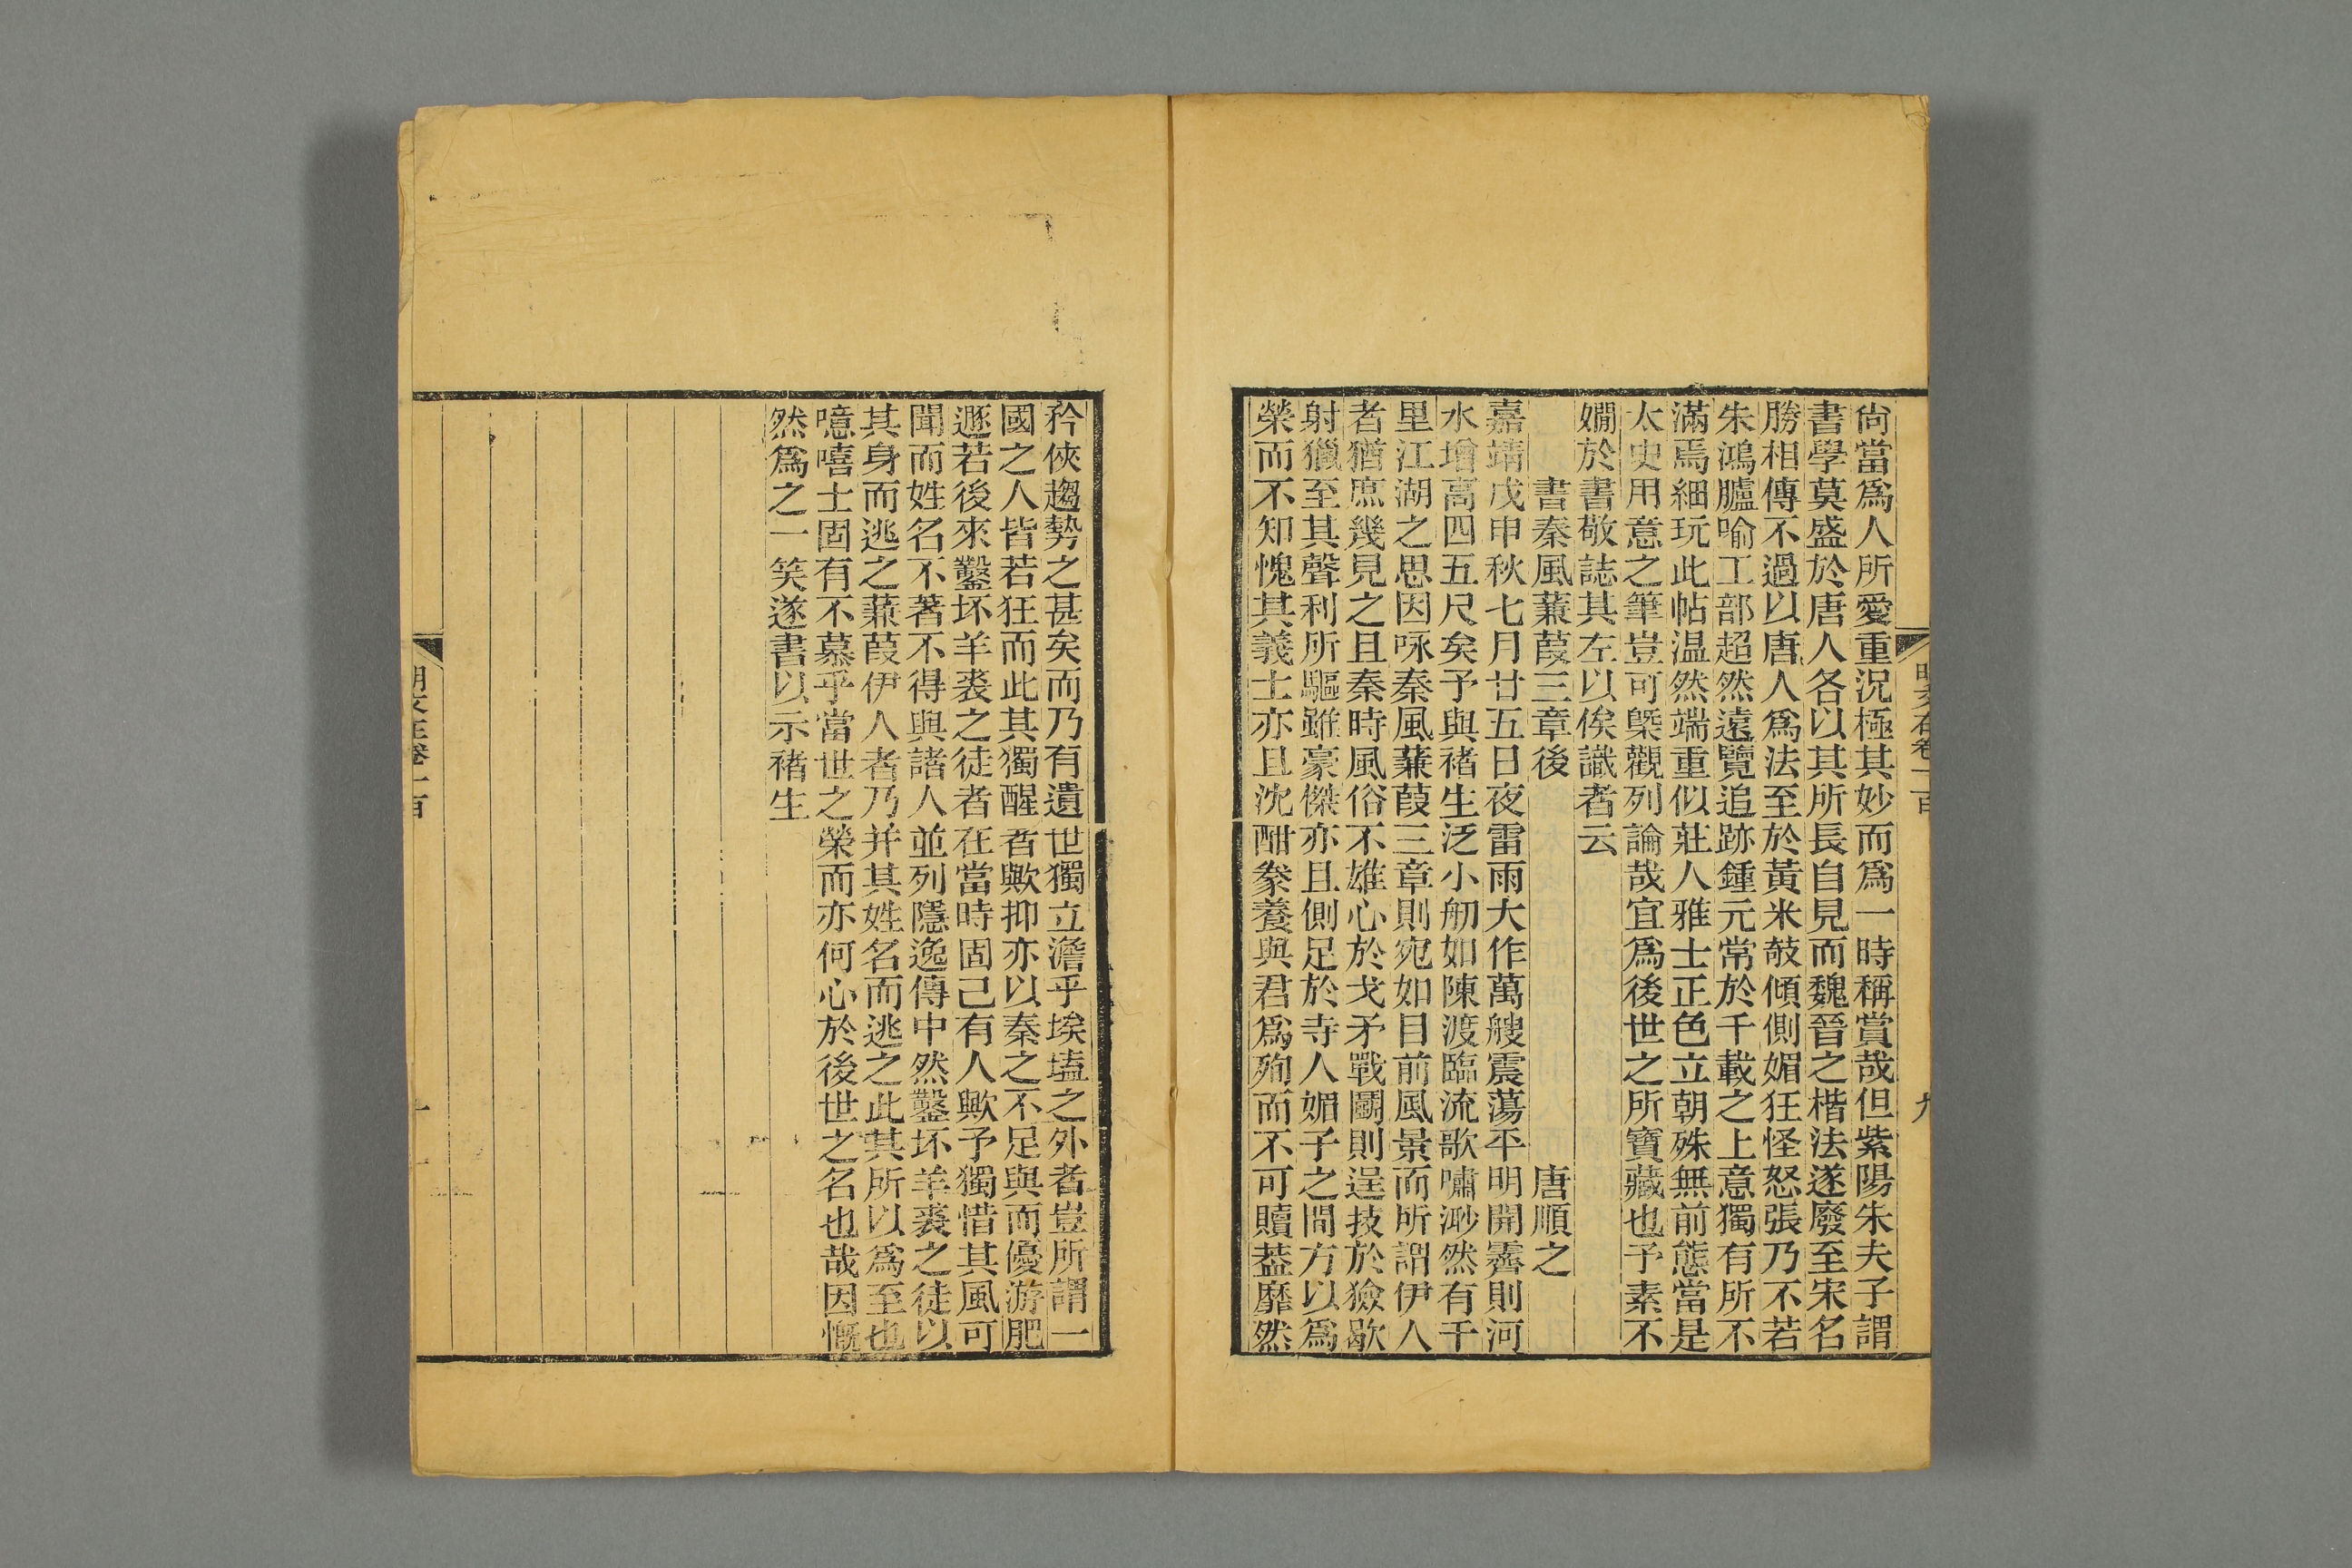 尙當爲人所愛重況極其妙而爲一時稱賞哉但紫陽朱夫子謂
書學莫盛於唐人各以其所長自見而魏晉之楷法遂廢至宋名
勝相傳不過以唐人爲法至於黃米攲傾側媚狂怪怒張乃不若
朱鴻臚喻工部超然遠覽追跡鍾元常於千載之上意獨有所不
滿焉細玩此帖温然端重似莊人雅士正色立朝殊無前態當是
太史用意之筆豈可槩觀列論哉宜爲後世之所寶藏也予素不
嫺於書敬誌其左以俟識者云
書秦風蒹葭三章後 唐順之
嘉靖戊申秋七月廿五日夜雷雨大作萬艘震蕩平明開霽則河
水增高四五尺矣予與褚生泛小舠如陳渡臨流歌嘯渺然有千
里江湖之思因咏秦風蒹葭三章則宛如目前風景而所謂伊人
者猶庶幾見之且秦時風俗不雄心於戈矛戰鬬則逞技於獫歇
射獵至其聲利所驅雖豪傑亦且側足於寺人媚子之間方以爲
榮而不知愧其義士亦且沈酣豢養與君爲殉而不可贖葢靡然
矜俠趨勢之甚矣而乃有遺世獨立澹乎埃壒之外者豈所謂一
國之人皆若狂而此其獨醒者歟抑亦以秦之不足與而優游肥
遯若後來鑿坏羊裘之徒者在當時固己有人歟予獨惜其風可
聞而姓名不著不得與諸人並列隱逸傳中然鑿坏羊裘之徒以
其身而逃之蒹葭伊人者乃并其姓名而逃之此其所以爲至也
噫嘻士固有不慕乎當世之榮而亦何心於後世之名也哉因慨
然爲之一笑遂書以示褚生